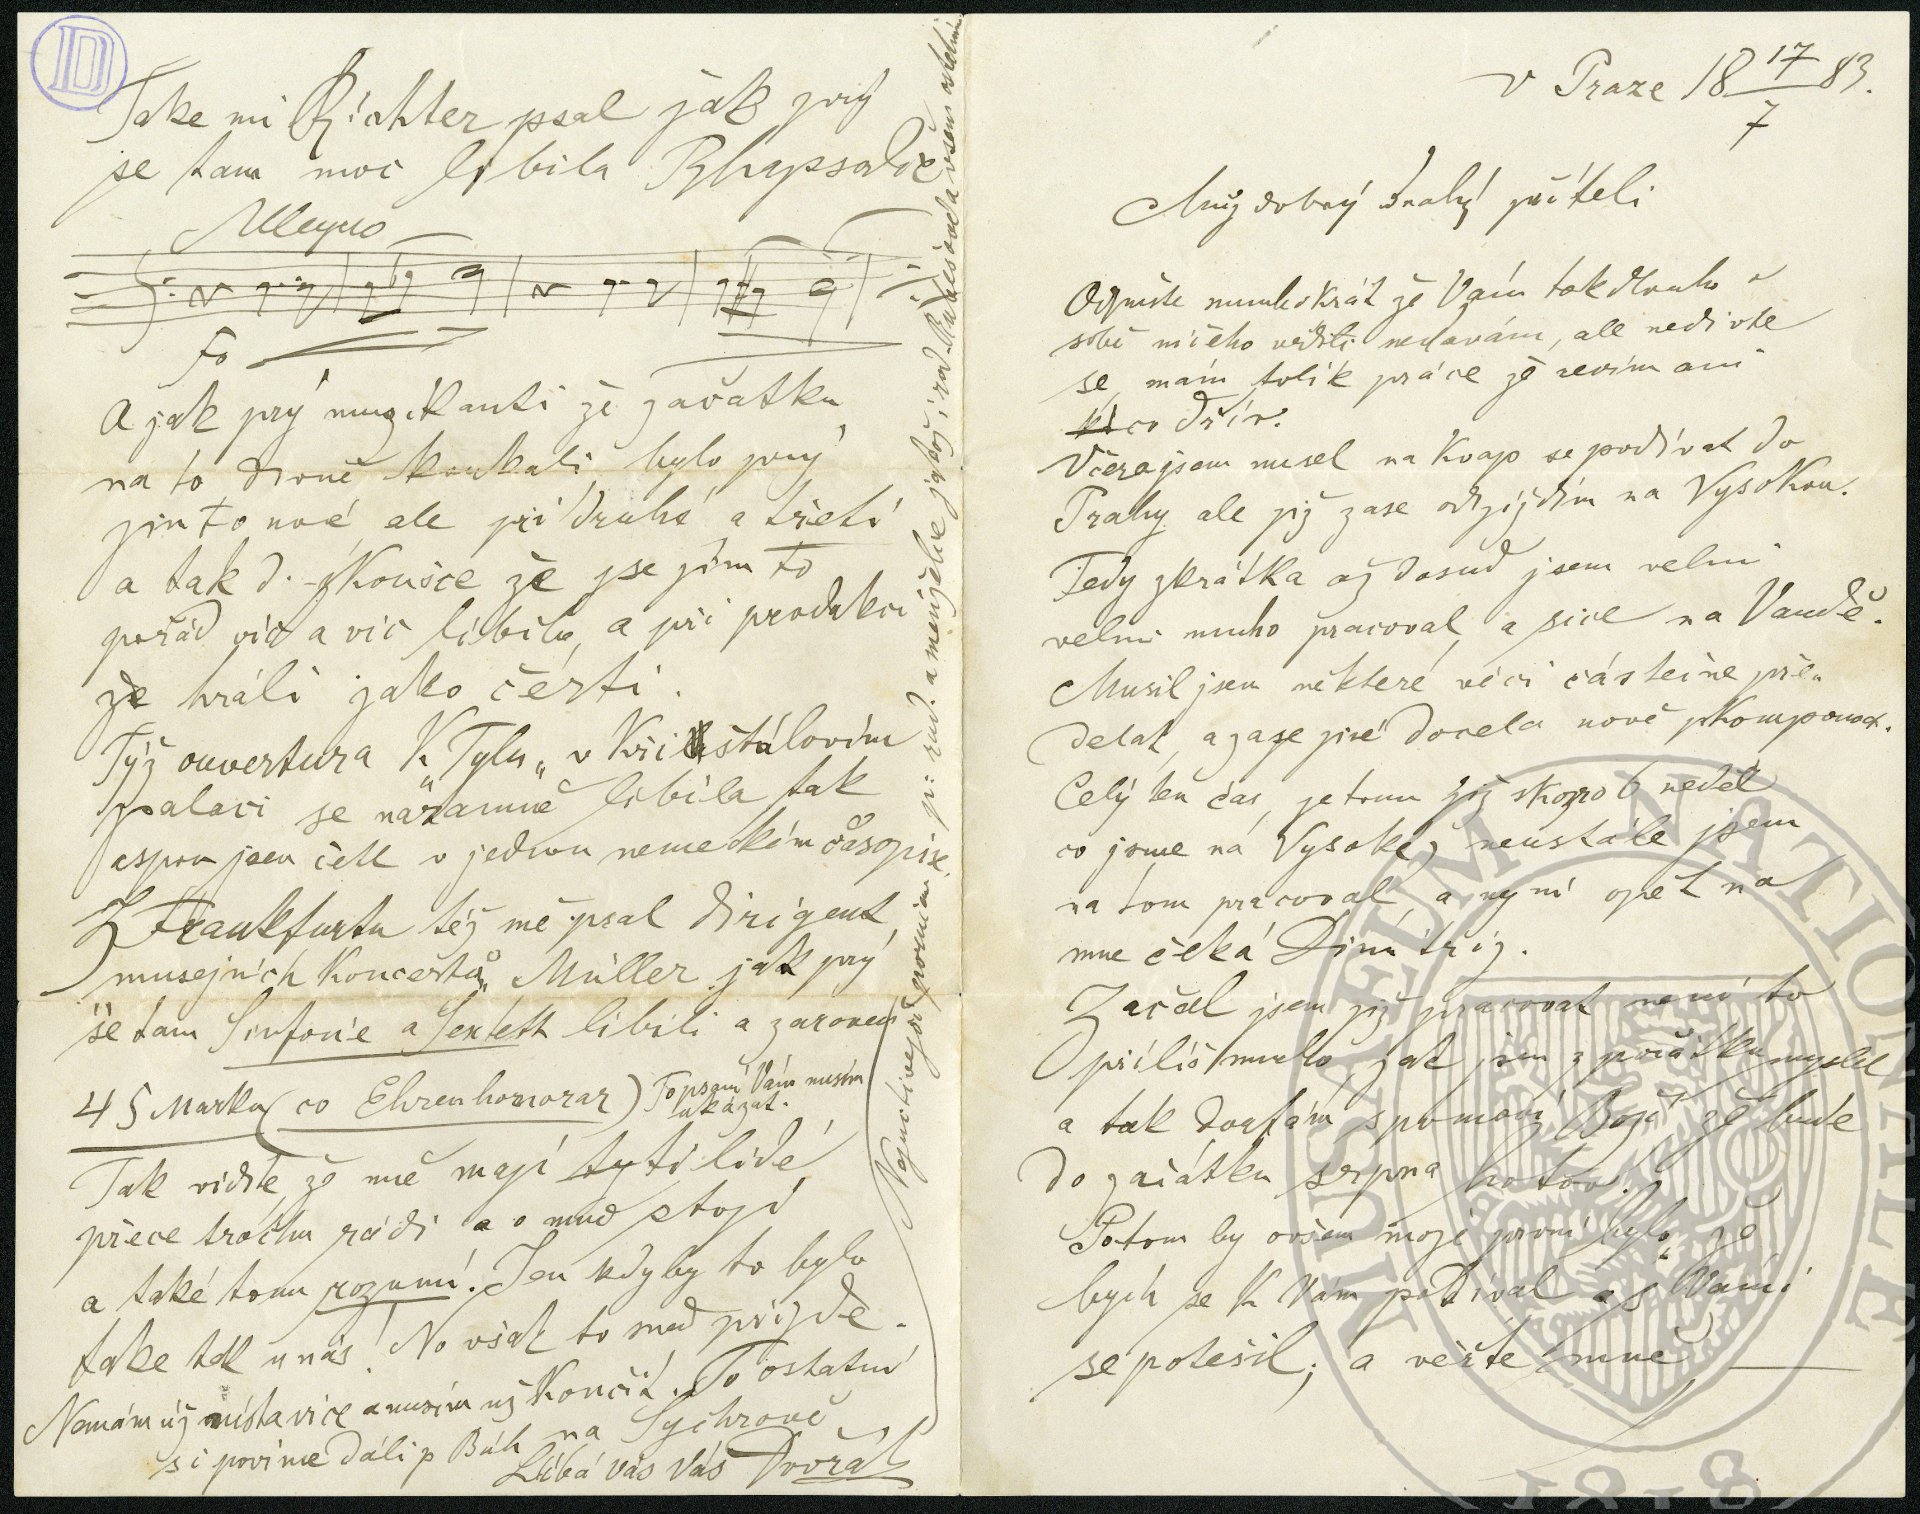 v Praze 18 17/7 83.
Můj dobrý drahý příteli
Odpusťte mnohokrát že Vám tak dlouho o
sobě ničeho věděti nedávám, ale nedivte
se, mám tolik práce že nevím ani
co dřív.
Včera jsem musel na kvap se podívat do
Prahy ale již zase odjíždím na Vysokou.
Tedy zkrátka až dosud jsem velmi
velmi mnoho pracoval, a sice na Vandě.
Musil jsem některé věci částečně pře„
dělat, a zase jiné docela nově
Celý ten čas, je tomu již skoro 6 neděl
co jsme na Vysoké, neustále jsem
na tom pracoval, a nyní opět na
mne čeká Dimitrij.
Začal jsem již pracovat není to
příliš mnoho jak jsem z počátku myslel
a tak doufám s pomocí Boží že bude
do začátku srpna hotov.
Potom by ovšem moje první bylo, že
bych se k Vám podíval a s Vámi
se potěšil; a věřte mně
D
Take mi Richter psal jak prý
se tam moc líbila Rhapsodie
Allegro
A jak prý muzikanti ze začátku
na to divně koukali, bylo prý
jim to nové, ale při druhé a třetí
a tak d. zkoušce že se jim to
pořád víc a víc líbilo, a při produkci
že hráli jako čerti.
Týž ouvertura K „Tylu„ v Krištálovím
palaci se náramně líbila tak
aspon jsem četl v jednom nemeckém časopise.
Z Frankfurtu též mě psal dirigent
„musejních koncertů„ Müller jak prý
se tam Sinfonie a Sextett líbili a zaroven
45 Marku (co Ehrenhonorar) To psaní Vám musím
ukázat.
Tak vidíte, že mě mají tyti lidé
přece trochu rádi a o mně stojí
a také tomu rozumí. Jen kdyby to bylo
take tak u nás! No však to snad přijde.
Nemám už místa více a musím už končit. To ostatní
si povíme dá li p Bůh na Sychrově
Líbá vás váš Dvořák